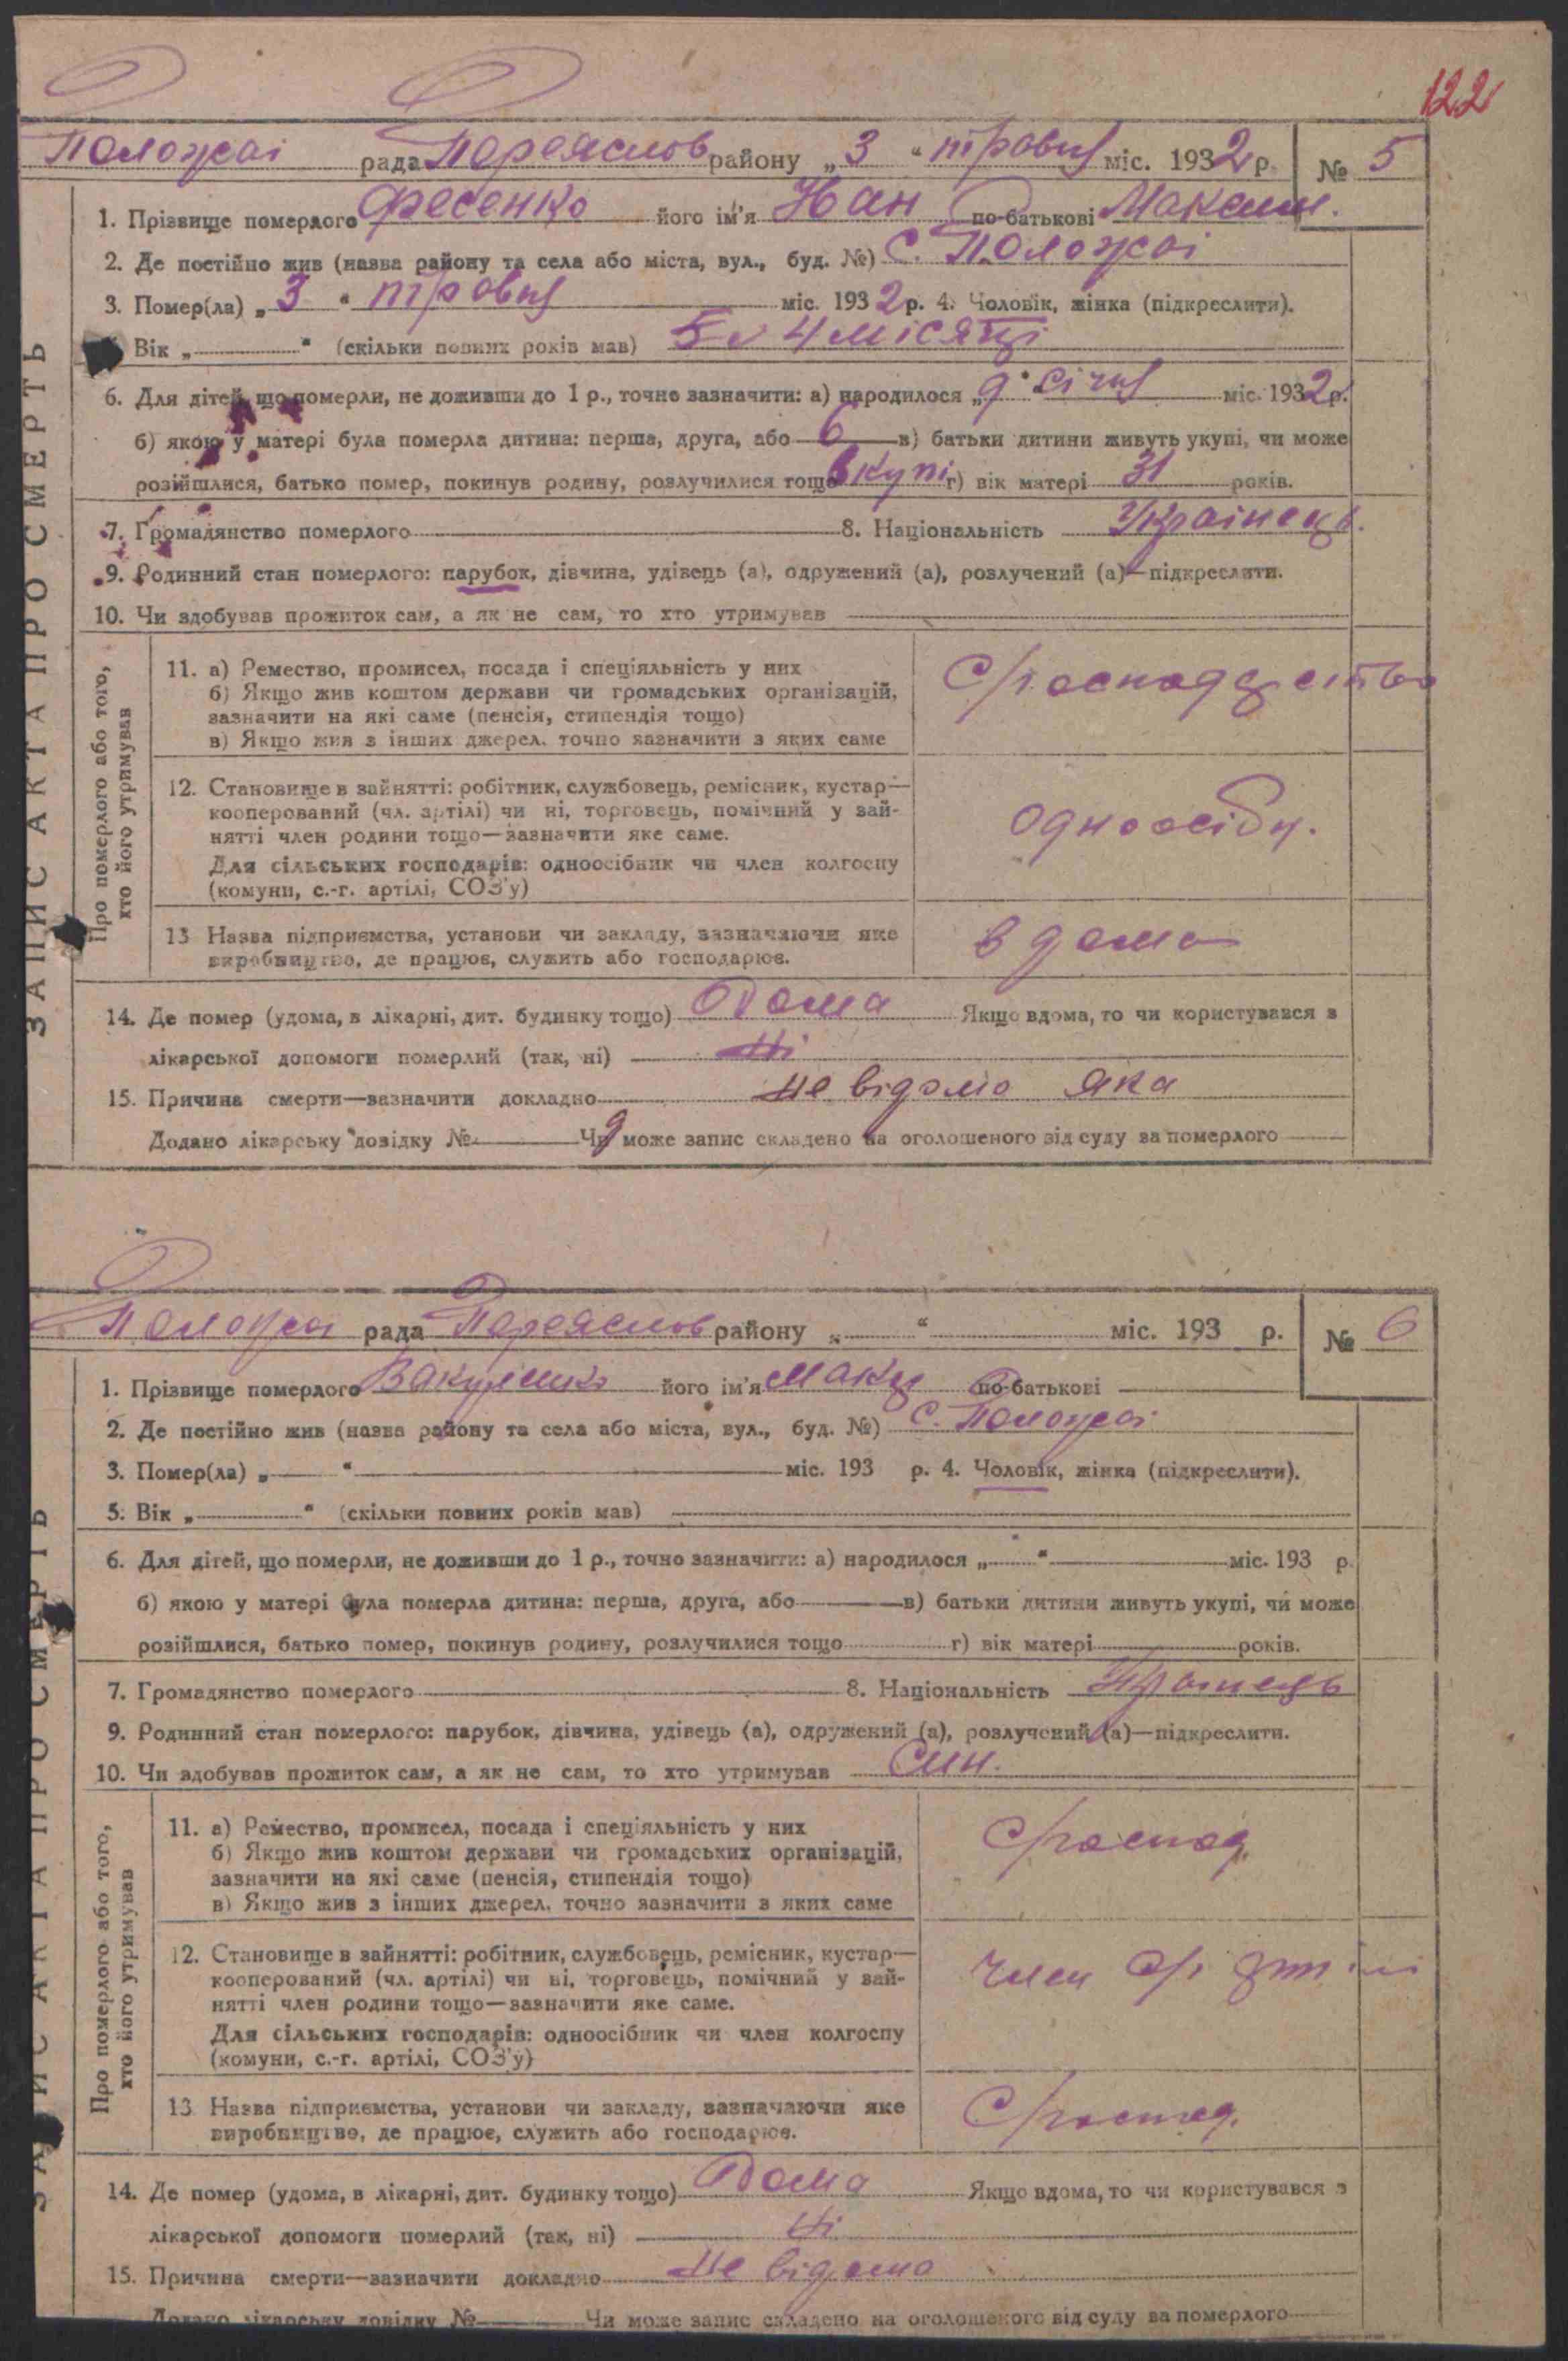 122
Положаї рада Переяслов району „3“ травня міс. 1932 р. № 5
ЗАПИС АКТА ПРО СМЕРТЬ
1. Прізвище померлого Фесенко його ім'я Іван по-батькові Максим.
2. Де постійно жив (назва району та села або міста, вул., буд. №) С. Положаї
3. Помер(ла) „3“ травня міс. 1932 р. 4. Чоловік, жінка (підкреслити).
Вік „ “ (скільки повних років мав) 4 місяці
6. Для дітей, що померли, не доживши до 1 р., точно зазначити: а) народилося „9“ січня міс. 1932 р.
б) якою у матері була померла дитина: перша, друга, або 6 в) батьки дитини живуть укупі, чи може
розійшлися, батько помер, покинув родину, розлучилися тощо вкупі г) вік матері 31 років.
7. Громадянство померлого 8. Національність Українець.
9. Родинний стан померлого: парубок, дівчина, удівець (а), одружений (а), розлучений (а)—підкреслити.
10. Чи здобував прожиток сам, а як не сам, то хто утримував
Про померлого або того, хто його утримував
11. а) Ремество, промисел, посада і спеціяльність у них
б) Якщо жив коштом держави чи громадських організацій,
зазначити на які саме (пенсія, стипендія тощо)
в) Якщо жив з інших джерел, точно зазначити з яких саме
С/господарство
12. Становище в зайнятті: робітник, службовець, ремісник, кустар—
кооперований (чл. артілі) чи ні, торговець, помічний у зай-
нятті член родини тощо—зазначити яке саме.
Для сільських господарів: одноосібник чи член колгоспу
(комуни, с.-г. артілі, СОЗ'у)
одноосібн.
13 Назва підприємства, установи чи закладу, зазначаючи яке
виробництво, де працює, служить або господарює.
в дома
14. Де помер (удома, в лікарні, дит. будинку тощо) Дома Якщо вдома, то чи користувався з
лікарської допомоги померлий (так, ні) Ні
15. Причина смерти—зазначити докладно не відомо яка
Додано лікарську довідку № Чи може запис складено на оголошеного від суду за померлого
Положаї рада Переяслов району „ “ міс. 193 р. № 6
ЗАПИС АКТА ПРО СМЕРТЬ
1. Прізвище померлого Вакуленко його ім'я по-батькові
2. Де постійно жив (назва району та села або міста, вул., буд. №) С. Положаї
3. Помер(ла) „ “ міс. 193 р. 4. Чоловік, жінка (підкреслити).
5. Вік „ “ (скільки повних років мав)
6. Для дітей, що померли, не доживши до 1 р., точно зазначити: а) народилося „ “ міс. 193 р.
б) якою у матері була померла дитина: перша, друга, або в) батьки дитини живуть укупі, чи може
розійшлися, батько помер, покинув родину, розлучилися тощо г) вік матері років.
7. Громадянство померлого 8. Національність Українець
9. Родинний стан померлого: парубок, дівчина, удівець (а), одружений (а), розлучений (а)—підкреслити.
10. Чи здобував прожиток сам, а як не сам, то хто утримував Син.
Про померлого або того, хто його утримував
11. а) Ремество, промисел, посада і спеціяльність у них
б) Якщо жив коштом держави чи громадських організацій,
зазначити на які саме (пенсія, стипендія тощо)
в) Якщо жив з інших джерел, точно зазначити з яких саме
С/господ.
12. Становище в зайнятті: робітник, службовець, ремісник, кустар—
кооперований (чл. артілі) чи ні, торговець, помічний у зай-
нятті член родини тощо—зазначити яке саме.
Для сільських господарів: одноосібник чи член колгоспу
(комуни, с.-г. артілі, СОЗ'у)
член с/г артілі
13 Назва підприємства, установи чи закладу, зазначаючи яке
виробництво, де працює, служить або господарює.
С/господ.
14. Де помер (удома, в лікарні, дит. будинку тощо) Дома Якщо вдома, то чи користувався з
лікарської допомоги померлий (так, ні) Ні
15. Причина смерти—зазначити докладно не відомо
Додано лікарську довідку № Чи може запис складено на оголошеного від суду за померлого